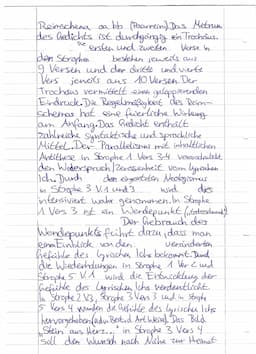 Reimschema aabb (Paarreim). Das Metrum
des Gedichts ist durchgängig ein Trochäus.
Die ersten und zweiten Verse in
den Strophen bestehen jeweils aus
9 Versen und der dritte und vierte
Vers jeweils aus 10 Versen. Der
Trochäus vermittelt einen galoppierenden
Eindruck. Die Regelmäßigkeit des Reim-
schemas hat eine feierliche Wirkung
am Anfang. Das Gedicht enthält
zahlreiche syntaktische und sprachliche
Mittel. Der Parallelismus mit inhaltlichen
Antithese in Strophe 1 Vers 3+4 veranschaulicht
den Widerspruch / Zerissenheit vom lyrischen
Ich. Durch den eingesetzten Neologismus
in Strophe 3 V.1 und 3 wird dies
intensiviert wahr genommen. In Strophe
1 Vers 3 ist ein Wendepunkt
Der Gebrauch des
Wendepunktes führt dazu, dass man
eine Einblick von den veränderten
Gefühle des lyrischen Ichs bekommt. Durch
die Wiederholungen in Strophe 1 Vers und
Strophe 5 V.1 wird die Entwicklung der
Gefühle des lyrischen Ichs verdeutlicht.
In Strophe 2 V3, Strophe 3 Vers 3 und in Strophe
5 Vers 4 wurden die Gefühle des lyrischen Ichs
hervorgehoben Das Bild
"Stein aufs Herz..." in Strophe 3 Vers 4
soll den Wunsch nach Nähe zur Heimat